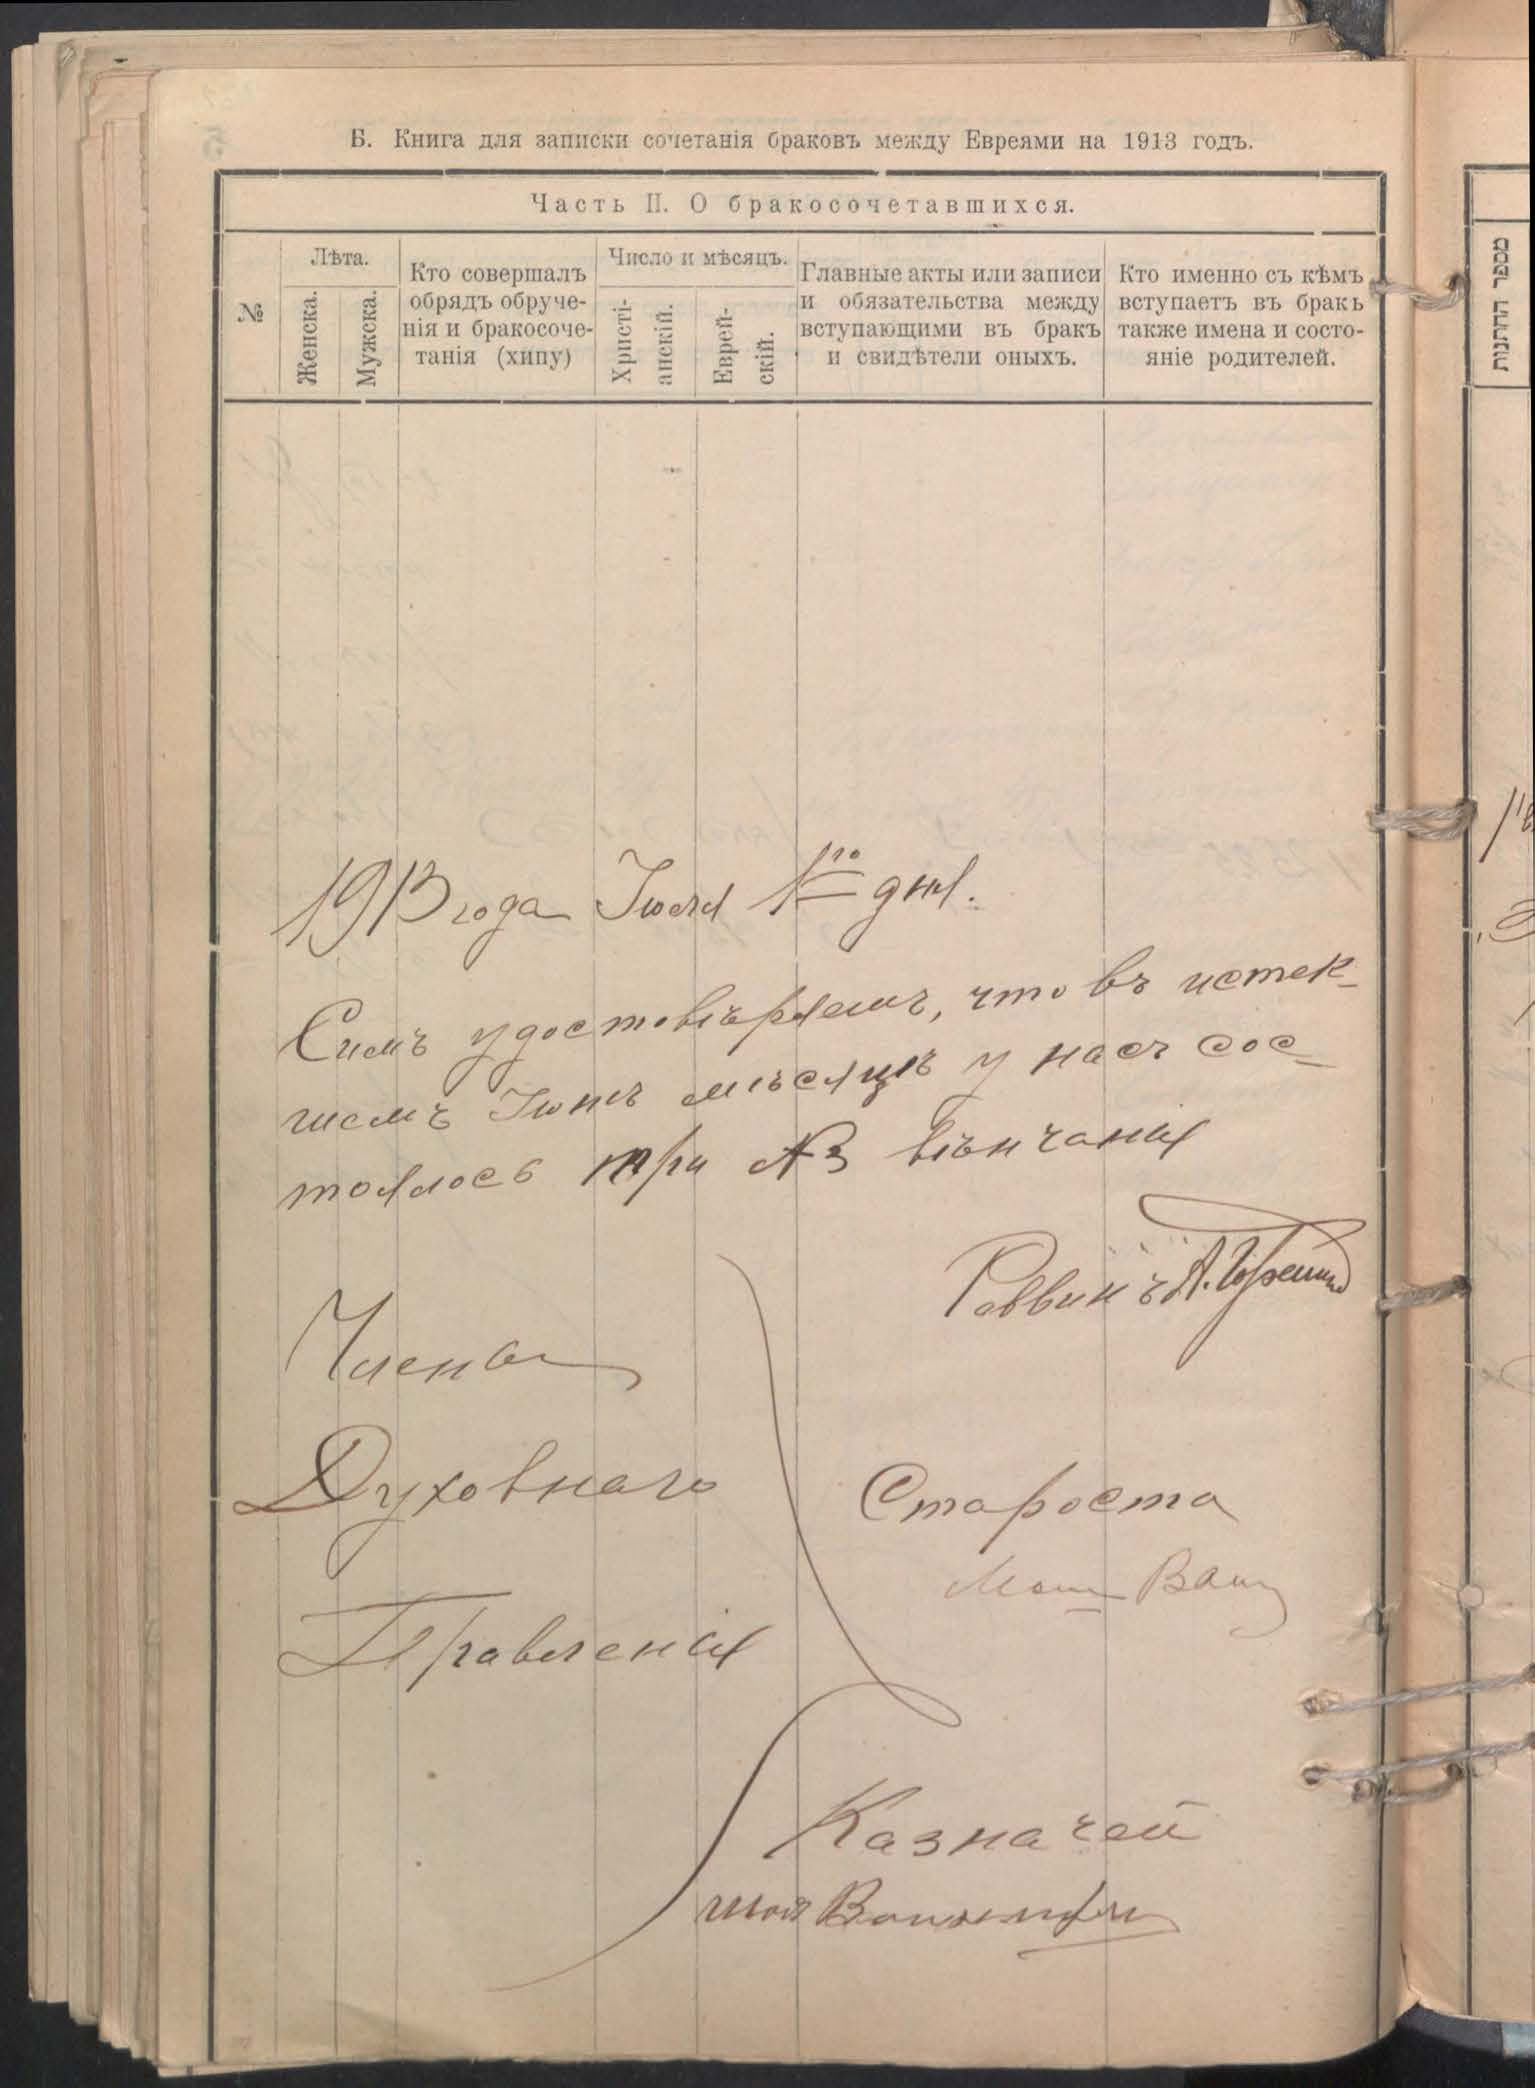 Б. Книга для записки сочетанія браковъ между Евреями на 1913 годъ.
Часть II. О бракосочетавшихся.
№
Лѣта.
Женска.
Мужска.
Кто совершалъ
обрядъ обруче-
нія и бракосоче-
танія (хипу)
Число и мѣсяцъ.
Христі-
анскій.
Еврей-
скій.
Главные акты или записи
и обязательства между
вступающими въ бракъ
и свидѣтели оныхъ.
Кто именно съ кѣмъ
вступаетъ въ бракъ
также имена и состо-
яніе родителей.
מספר החתנות
1913 года Іюля 1го дня.
Симъ удостовѣряемъ, что въ истек-
шемъ Іюнѣ мѣсяцѣ у насъ сос-
тоялось три №3 вѣнчанія
Раввинъ А.
Члены
Духовнаго
Правленія
Староста
Казначей